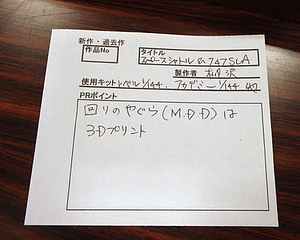 新作・過去作
作品No
タイトル
スペースシャトル & 747SCA
製作者
使用キット レベル 1/144, アカデミー 1/144
PRポイント
回りのやぐら(M.D.D)は
3Dプリント